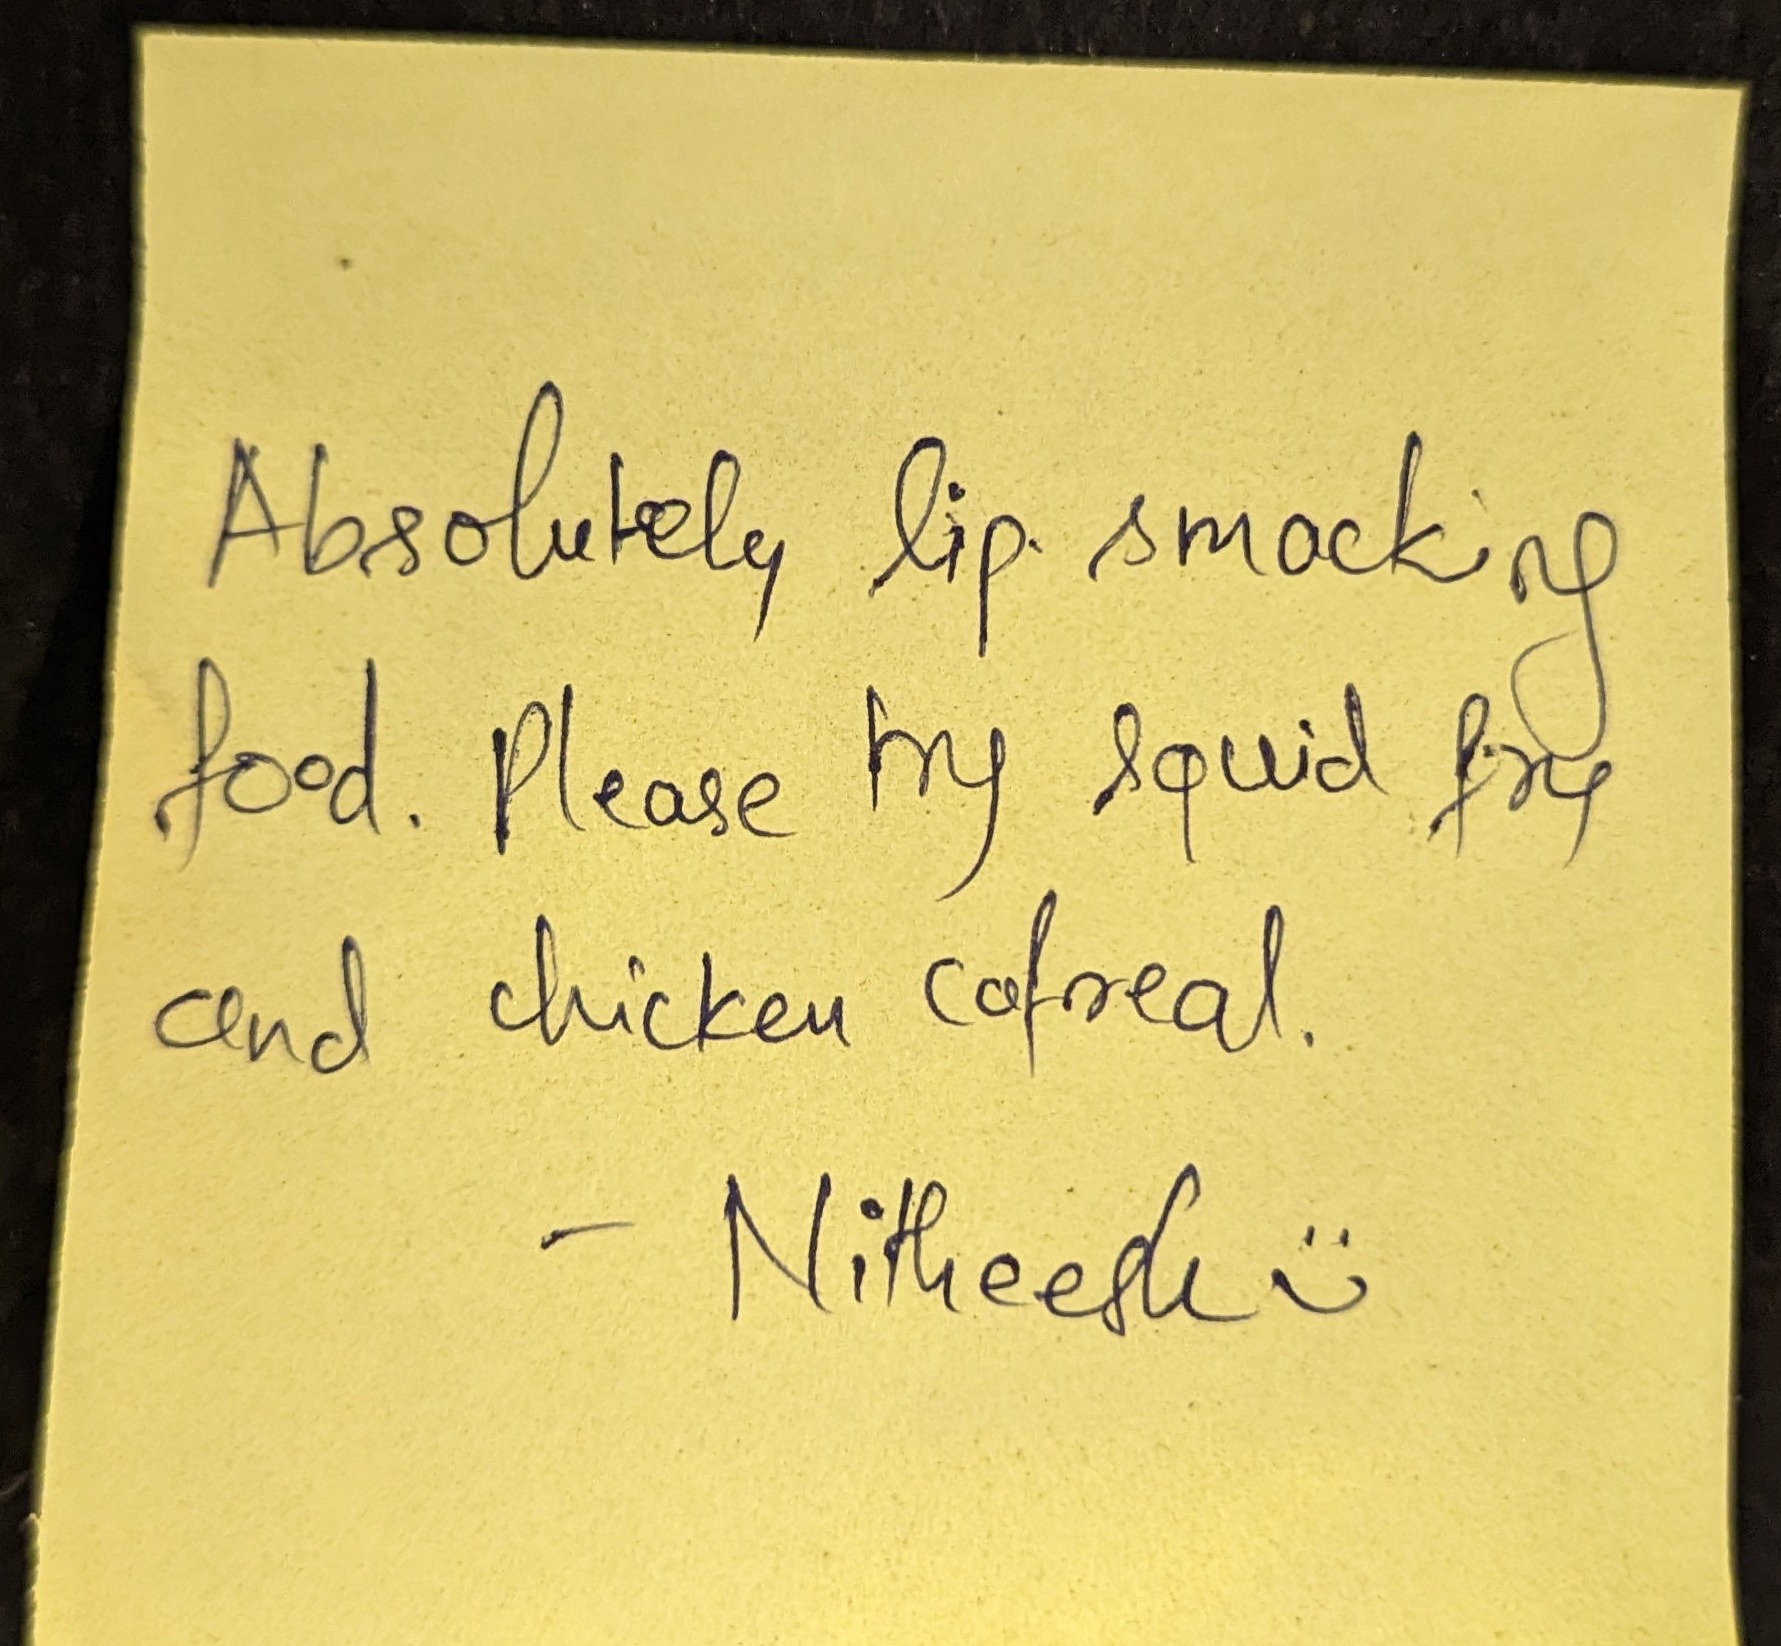 Absolutely lip smacking
food. Please try squid fry
and chicken cafreal.
- Nitheesh :)